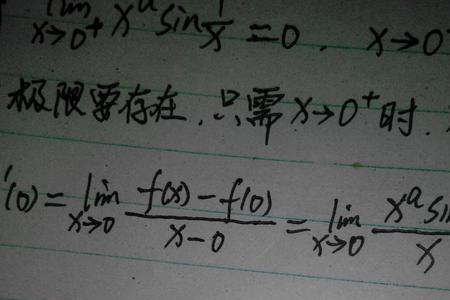 lim x→0⁺ xᵃ sin 1/x = 0. x→0
极限要存在,只需 x→0⁺ 时.
'(0) = lim x→0 f(x)-f(0) / x-0 = lim x→0 xᵃ si / x